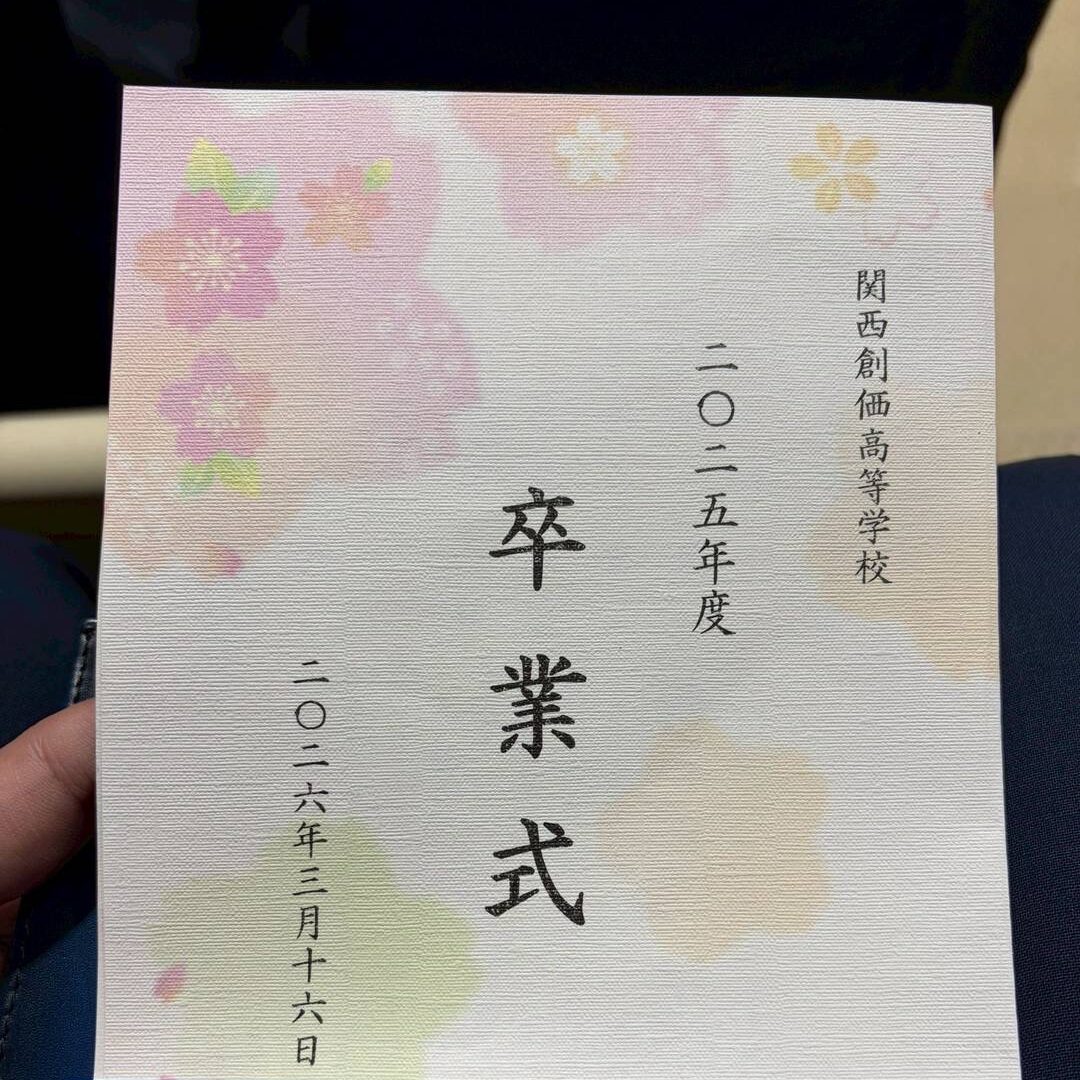 関西創価高等学校
二〇二五年度
卒業式
二〇二六年三月十六日